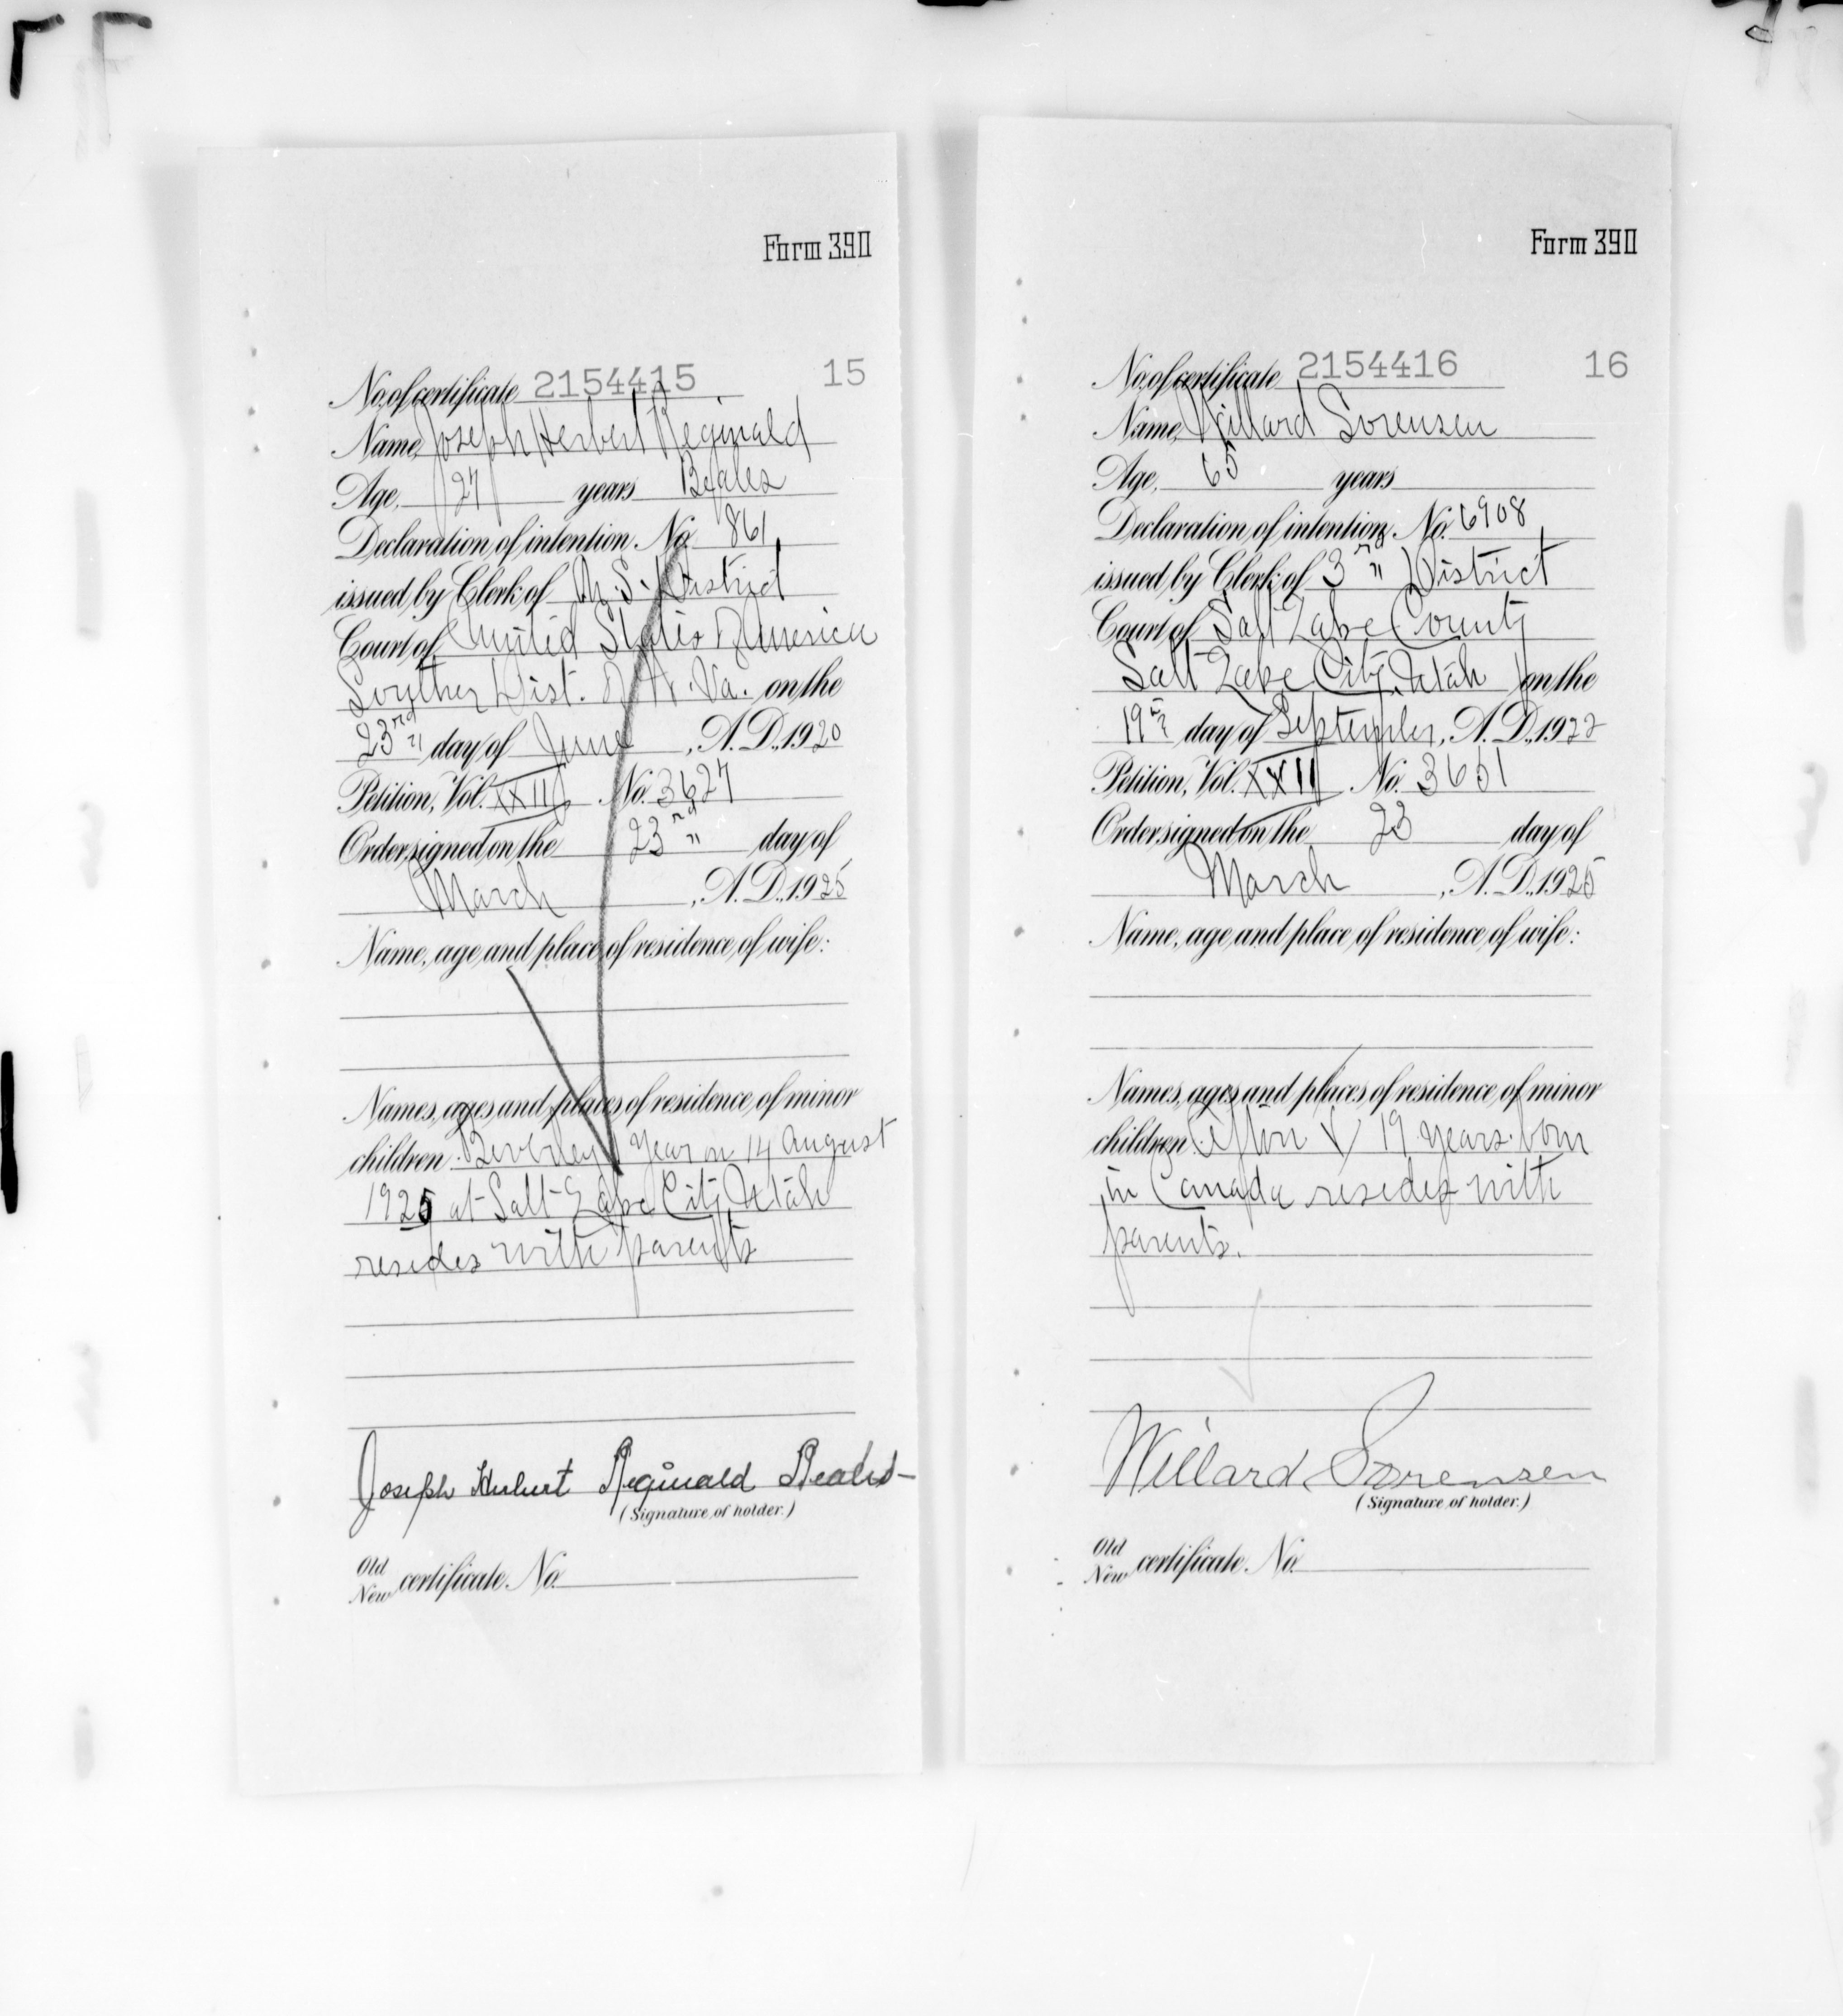 Form 390
No. of certificate 2154415 15
Name, Joseph Herbert Reginald
Age, 27 years Beales
Declaration of intention No. 861
issued by Clerk of U.S. District
Court of United States America
Southern Dist. of W. Va. on the
23rd day of June, A.D., 1920
Petition, Vol. XXII No. 3627
Order signed on the 23rd day of
March, A.D., 1925
Name, age and place of residence of wife:
Names, ages and places of residence of minor
children Beverley 1 year on 14 August
1925 at Salt Lake City Utah
resides with parents
Joseph Herbert Reginald Beales
(Signature of holder.)
Old
New certificate No.
Form 390
No. of certificate 2154416 16
Name, Willard Sorensen
Age, 65 years
Declaration of intention No. 6908
issued by Clerk of 3rd District
Court of Salt Lake County
Salt Lake City, Utah on the
19th day of September, A.D., 1922
Petition, Vol. XXII No. 3651
Order signed on the 23 day of
March, A.D., 1925
Name, age and place of residence of wife:
Names, ages and places of residence of minor
children 19 years born
in Canada resides with
parents.
Willard Sorensen
(Signature of holder.)
Old
New certificate No.